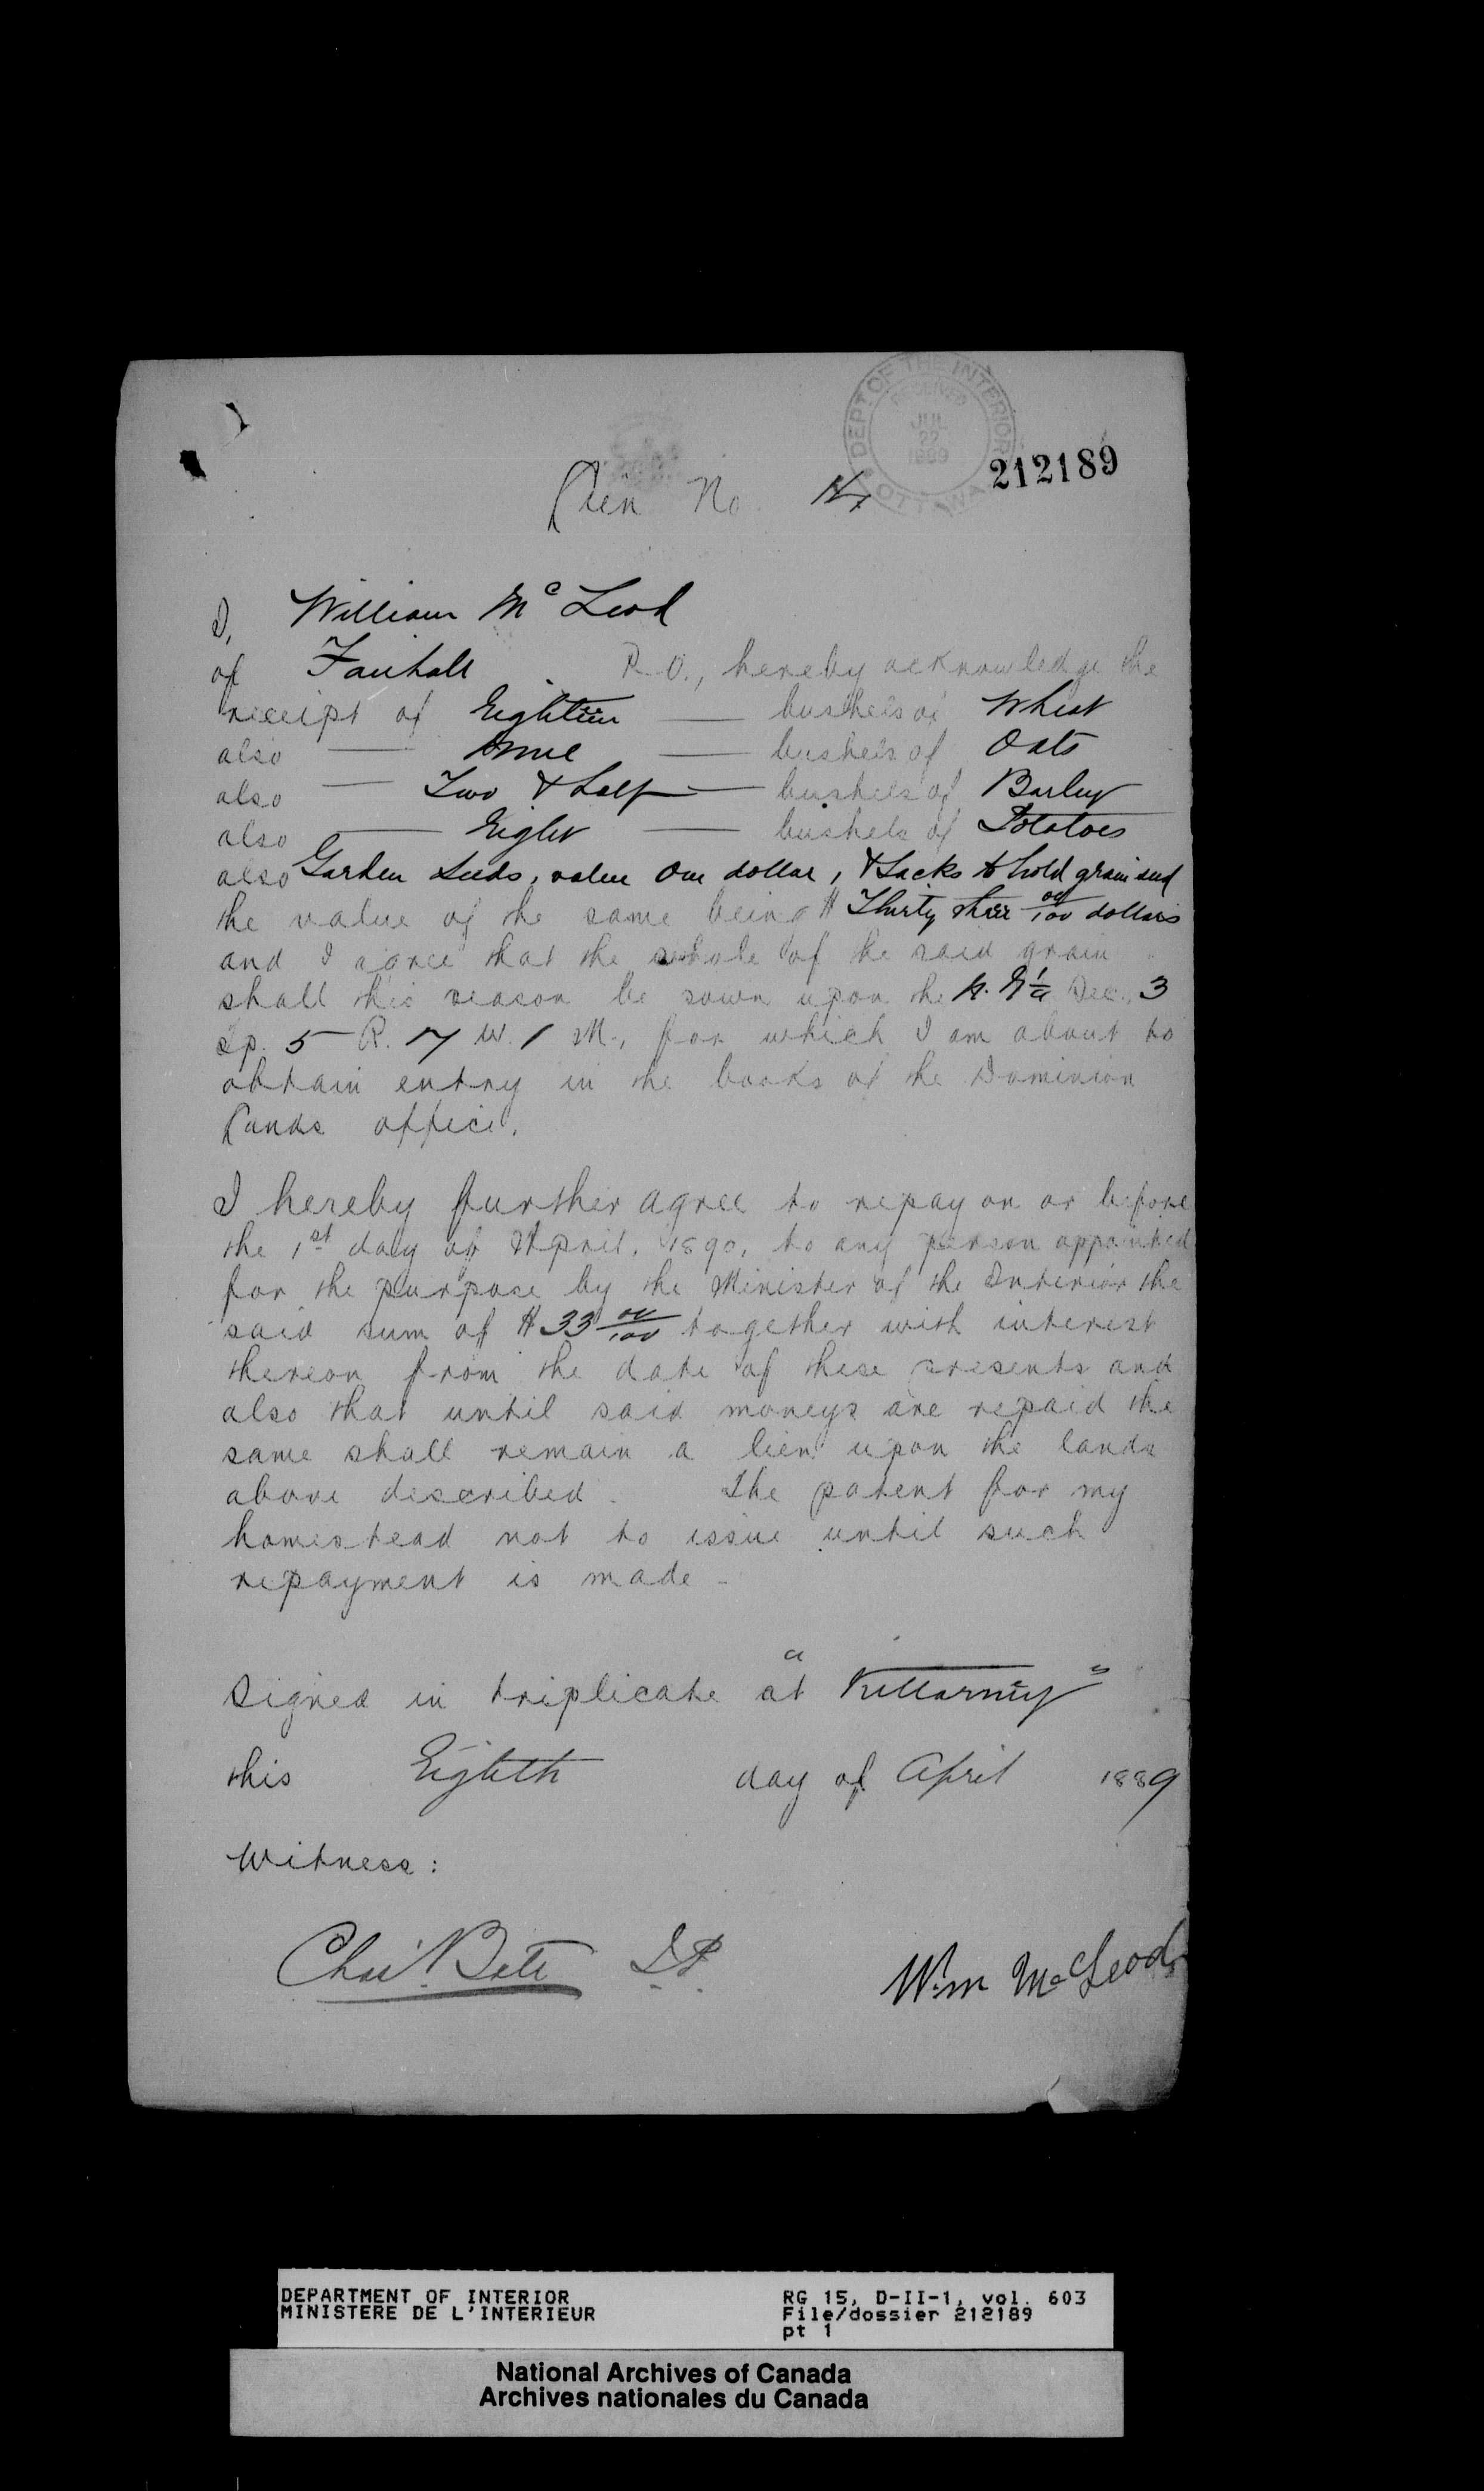 DEPT. OF THE INTERIOR
RECEIVED
JUL
22
1889
OTTAWA
212189
Lien No. 14
I, William McLeod
of Fairhall P.O., hereby acknowledge the
receipt of Eighteen — bushels of Wheat
also — — bushels of Oats
also — Two & half — bushels of Barley
also — Eight — bushels of Potatoes
also Garden Seeds, value One dollar, & Sacks to hold grain and
the value of the same being $ Thirty three 00/100 dollars
and I agree that the whole of the said grain
shall this season be sown upon the Sec. 3
Tp. 5 R. 17 W. 1 M., for which I am about to
obtain entry in the books of the Dominion
Lands office.
I hereby further agree to repay on or before
the 1st day of April, 1890, to any person appointed
for the purpose by the Minister of the Interior the
said sum of $33 00/100 together with interest
thereon from the date of these presents and
also that until said moneys are repaid the
same shall remain a lien upon the lands
above described. The patent for my
homestead not to issue until such
repayment is made -
Signed in triplicate at "Killarney"
this Eighth day of April 1889
Witness:
Chas. Bate J.P.
Wm McLeod
DEPARTMENT OF INTERIOR
MINISTERE DE L'INTERIEUR
RG 15, D-II-1, vol. 603
File/dossier 212189
pt 1
National Archives of Canada
Archives nationales du Canada